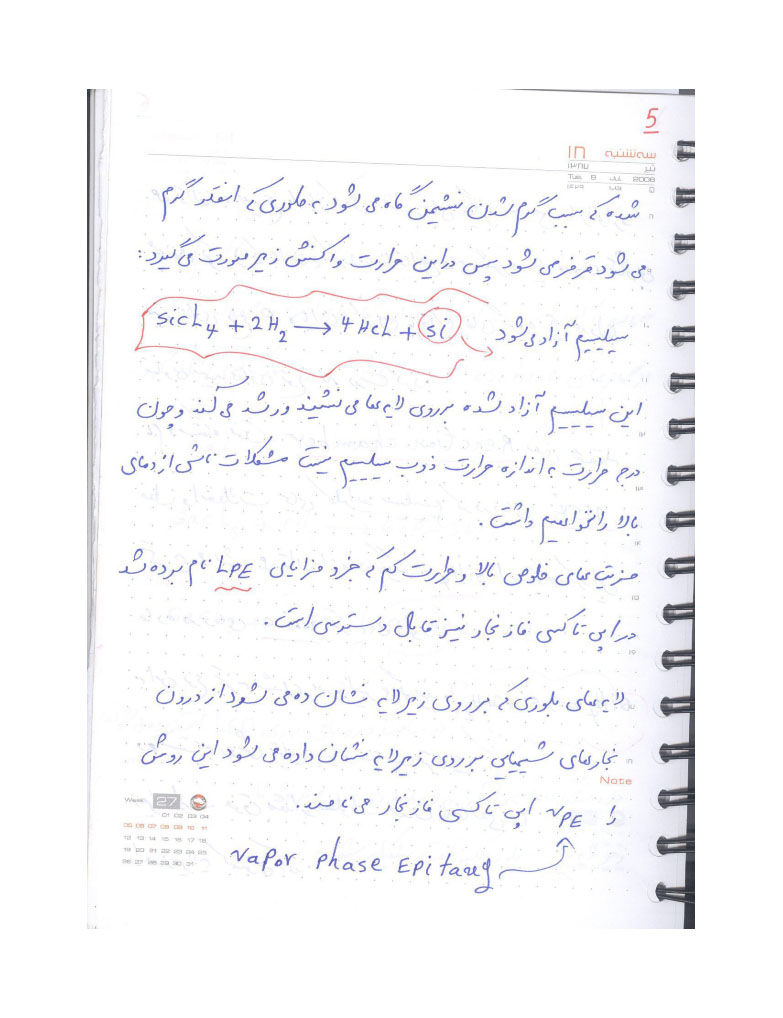 5
سه‌شنبه ۱۸
تیر ۱۳۸۷
Tue. 8 Jul 2008
شده که سبب گرم شدن نشیمن گاه می شود به طوری که انقدر گرم
می شود قرمز می شود پس در این حرارت واکنش زیر صورت می گیرد:
sicl4 + 2H2 → 4Hcl + si سیلیسیم آزاد می شود
این سیلیسیم آزاد شده برروی لایه ها می نشیند و رشد می کند و چون
درجه حرارت به اندازه حرارت ذوب سیلیسیم نیست مشکلات ناشی از دمای
بالا را نخواهیم داشت.
مزیت های خلوص بالا و حرارت کم که جزء مزایای LPE نام برده شد
در اپی تاکسی فاز بخار نیز قابل دسترسی است.
لایه های بلوری که برروی زیرلایه نشان ده می شود از درون
بخارهای شیمیایی برروی زیرلایه نشان داده می شود این روش
Note
را VPE اپی تاکسی فاز بخار می نامند.
Vapor Phase Epitaxy
Week 27
01 02 03 04
05 06 07 08 09 10 11
12 13 14 15 16 17 18
19 20 21 22 23 24 25
26 27 28 29 30 31